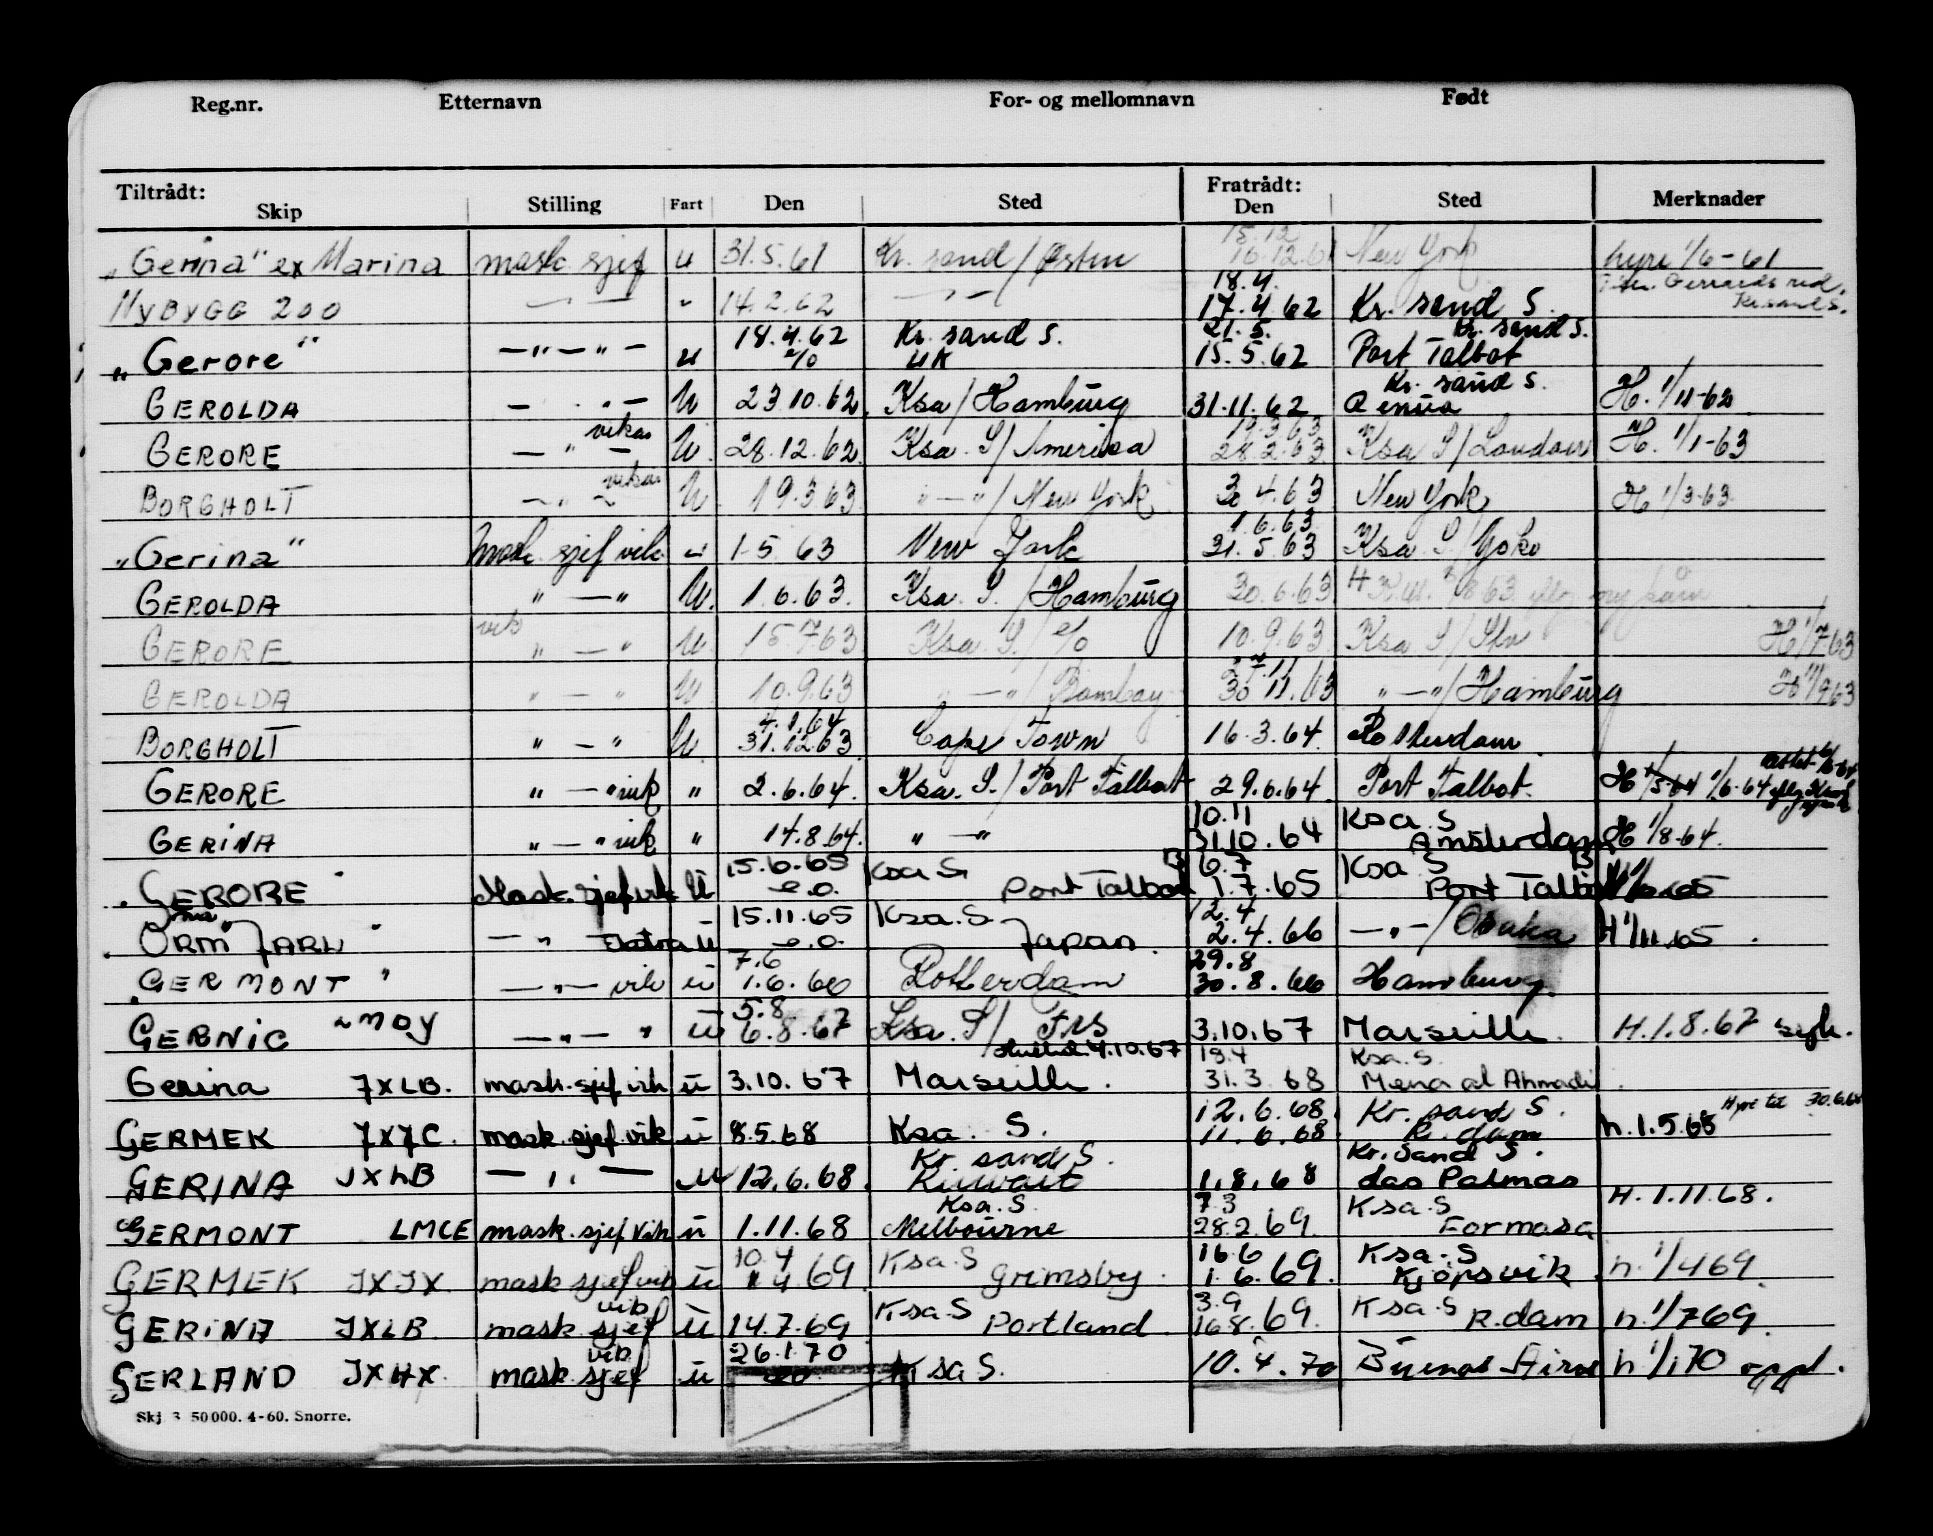 Reg.nr. Etternavn For- og mellomnavn Født
Tiltrådt: Fratrådt:
Skip Stilling Fart Den Sted Den Sted Merknader
15.12
"Gerina" ex Marina mask. sjef u 31.5.61 Kr. sand / Østen 16.12.61 New York hyre 1/6-61
18.4.
NYBYGG 200 — " — " 14.2.62 — " — 17.4.62 Kr. sand S. Kr.sand S.
18.4.62 Kr. sand S. 21.5. Kr. sand S.
"Gerore" — " — " — u %o UK 15.5.62 Port Talbot
Kr. sand S.
GEROLDA — " — U 23.10.62. Ksa / Hamburg 31.11.62 Genua H. 1/11-62
vikar 19.3.63
GERORE — " — U. 28.12.62 Ksa. S / Amerika 28.2.63 Ksa S / London H. 1/1-63
vikar
BORGHOLT — " — U. 19.3.63 " — " / New York 30.4.63 New York H 1/3-63
1.6.63
"Gerina" Mask. sjef vik u 1-5.63 New York 31.5.63 Ksa. S / Yoko
GEROLDA " — " U. 1.6.63. Ksa. S. / Hamburg 30.6.63
vik
GERORE " — " U 15.7.63 Ksa. S. / %o 10.9.63 Ksa S / H 1/7 63
GEROLDA " — " U 10.9.63 " — " / Bombay 30.11.63 " — " / Hamburg H 1/9 63
4.1.64
BORGHOLT " — " U. 31.12.63 Cape Town 16.3.64. Rotterdam
GERORE " — " vik " 2.6.64. Ksa. S. / Port Talbot 29.6.64. Port Talbot. H 1/5-64 1/6-64
10.11 Ksa. S
GERINA " — " vik " 14.8.64. " — " 31.10.64 Amsterdam H 1/8-64.
15.6.65 Ksa S 6.7 Ksa S
"GERORE" Mask. sjef vik U e.o. Port Talbot 1.7.65 Port Talbot H 1/6-65
15.11.65 Ksa. S 12.4
"ORM JARL" — " Ekstra U e.o. Japan. 2.4.66 — " — / Osaka H 1/11.65.
7.6 29.8
"GERMONT" — " — vik u 1.6.66 Rotterdam 30.8.66 Hamburg.
5.8
GERNIC ~MOY — " — " u 6.8.67 Ksa. S / 3.10.67 Marseille. H.1.8.67 syk.
4.10.67 19.4 Ksa. S.
Gerina JXLB. mask. sjef vik u 3.10.67 Marseille. 31.3.68 Mena al Ahmadi.
12.6.68. Kr. sand S. Hyre til 30.6.68
GERMEK JXJC. mask. sjef vik u 8.5.68 Ksa. S. 11.6.68. R. dam h.1.5.68
Kr. sand S. Kr. Sand S.
GERINA JXLB — " — u 12.6.68. Kuwait 1.8.68 Las Palmas
Ksa. S. 7.3 Ksa. S H.1.11.68.
GERMONT LMCE mask. sjef vik u 1.11.68 Melbourne 28.2.69. Formosa
10.4 Ksa. S 16.6 Ksa. S
GERMEK JXJX. mask sjef vik u 1.4.69 Grimsby. 1.6.69. Kjøpsvik. h. 1/4 69.
vik Ksa S 3.9 Ksa. S
GERINA JXLB. mask. sjef u 14.7.69 Portland. 16.8.69. R.dam h. 1/7 69.
vik 26.1.70
GERLAND JXHX. mask. sjef u eo Ksa S. 10.4.70 Buenos Aires h 1/1 70 oppl.
Skj 3 50000. 4-60. Snorre.